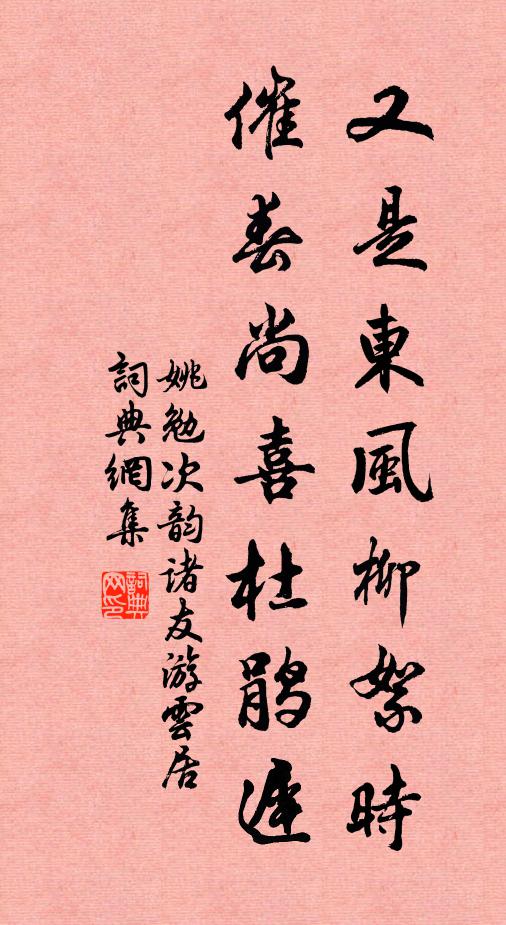 又是東風柳絮時
催春尚喜杜鹃遲
姚勉次韵诸友游雲居
詞典網集
詞典網印